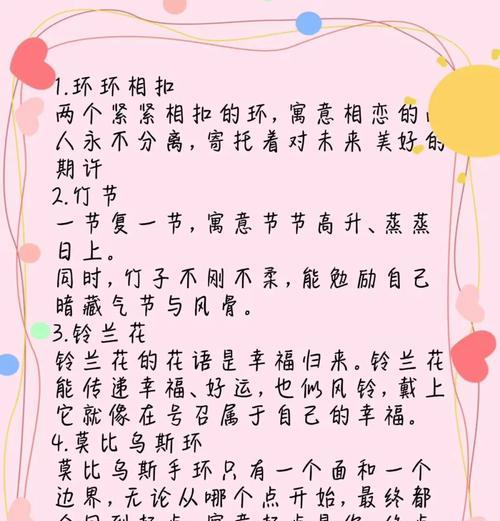 1.环环相扣
两个紧紧相扣的环,寓意相恋的
人永不分离,寄托着对未来美好的
期许
2.竹节
一节复一节,寓意节节高升、蒸蒸
日上。
同时,竹子不刚不柔,能勉励自己
暗藏气节与风骨。
3.铃兰花
铃兰花的花语是幸福归来。铃兰花
能传递幸福、好运,也似风铃,戴上
它就像在号召属于自己的幸福。
4.莫比乌斯环
莫比乌斯手环只有一个面和一个
边界,无论从哪个点开始,最终都